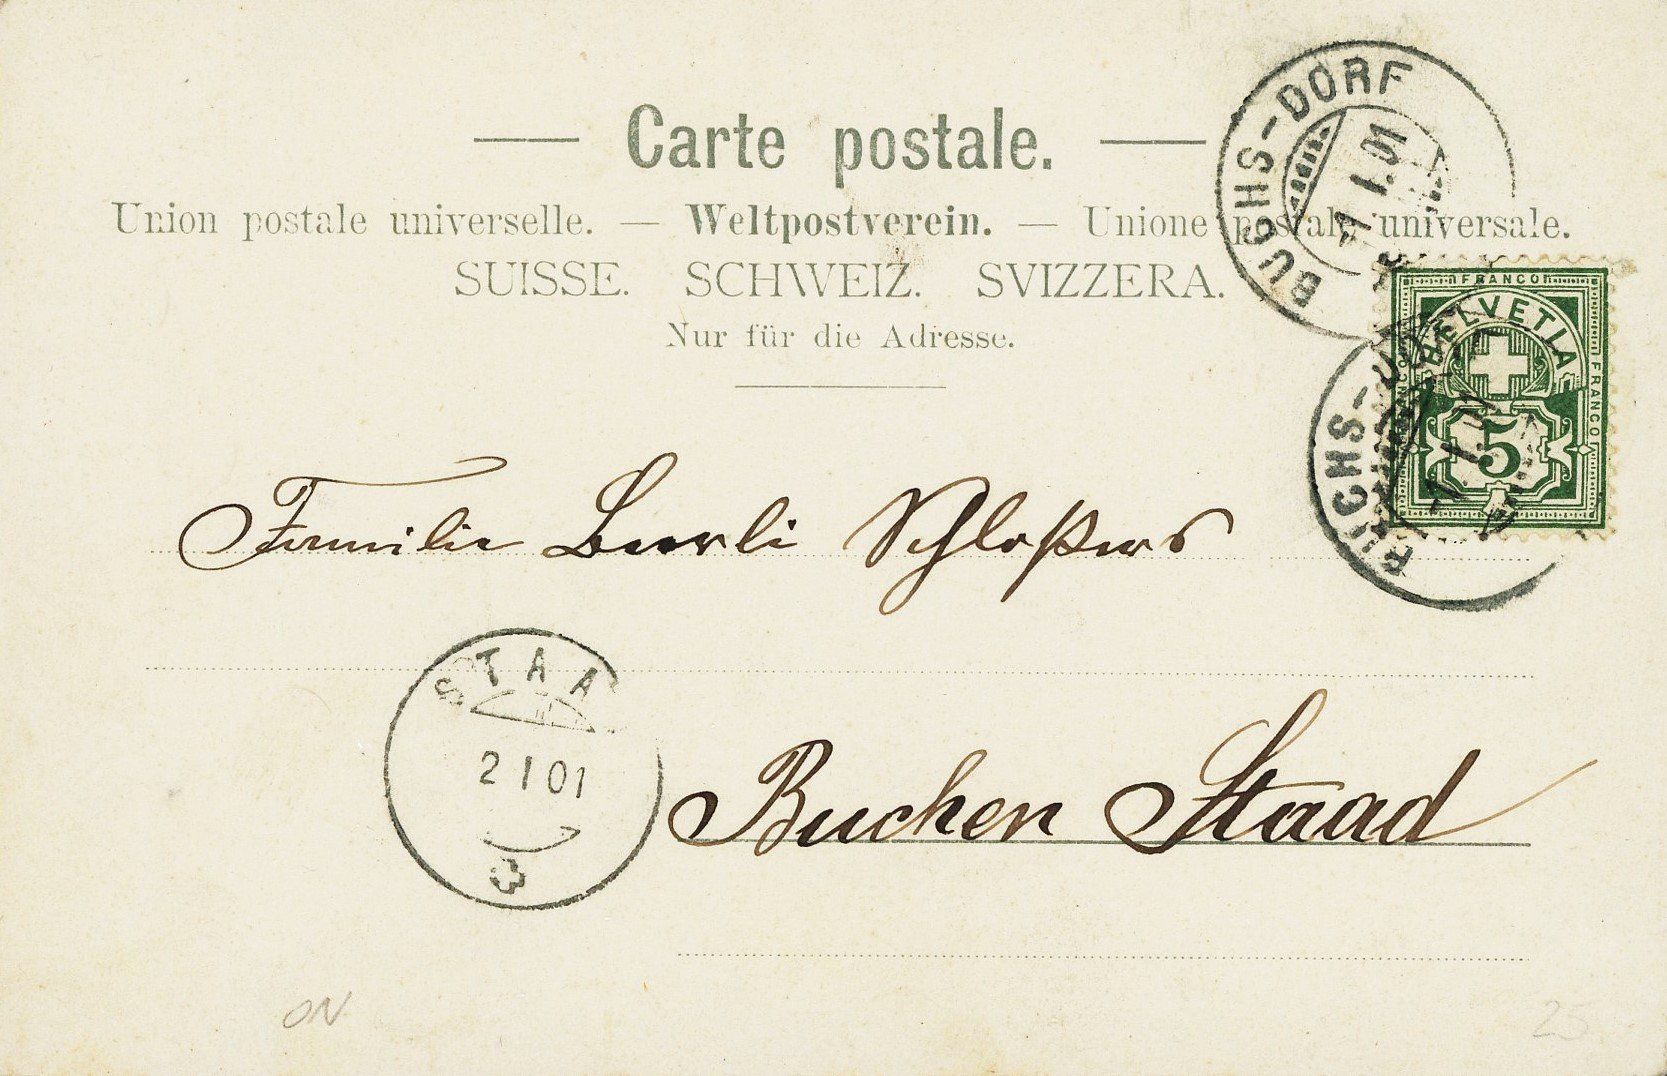 Carte postale.
Union postale universelle. — Weltpostverein. — Unione postale universale.
SUISSE. SCHWEIZ. SVIZZERA.
Nur für die Adresse.
BUCHS-DORF
1.I.01
FRANCO
FRANCO
HELVETIA
5
BUCHS-DO
1.I.01
Familie Loerli Schloßers
STAA
2 I 01
Buchen Staad
ON
25